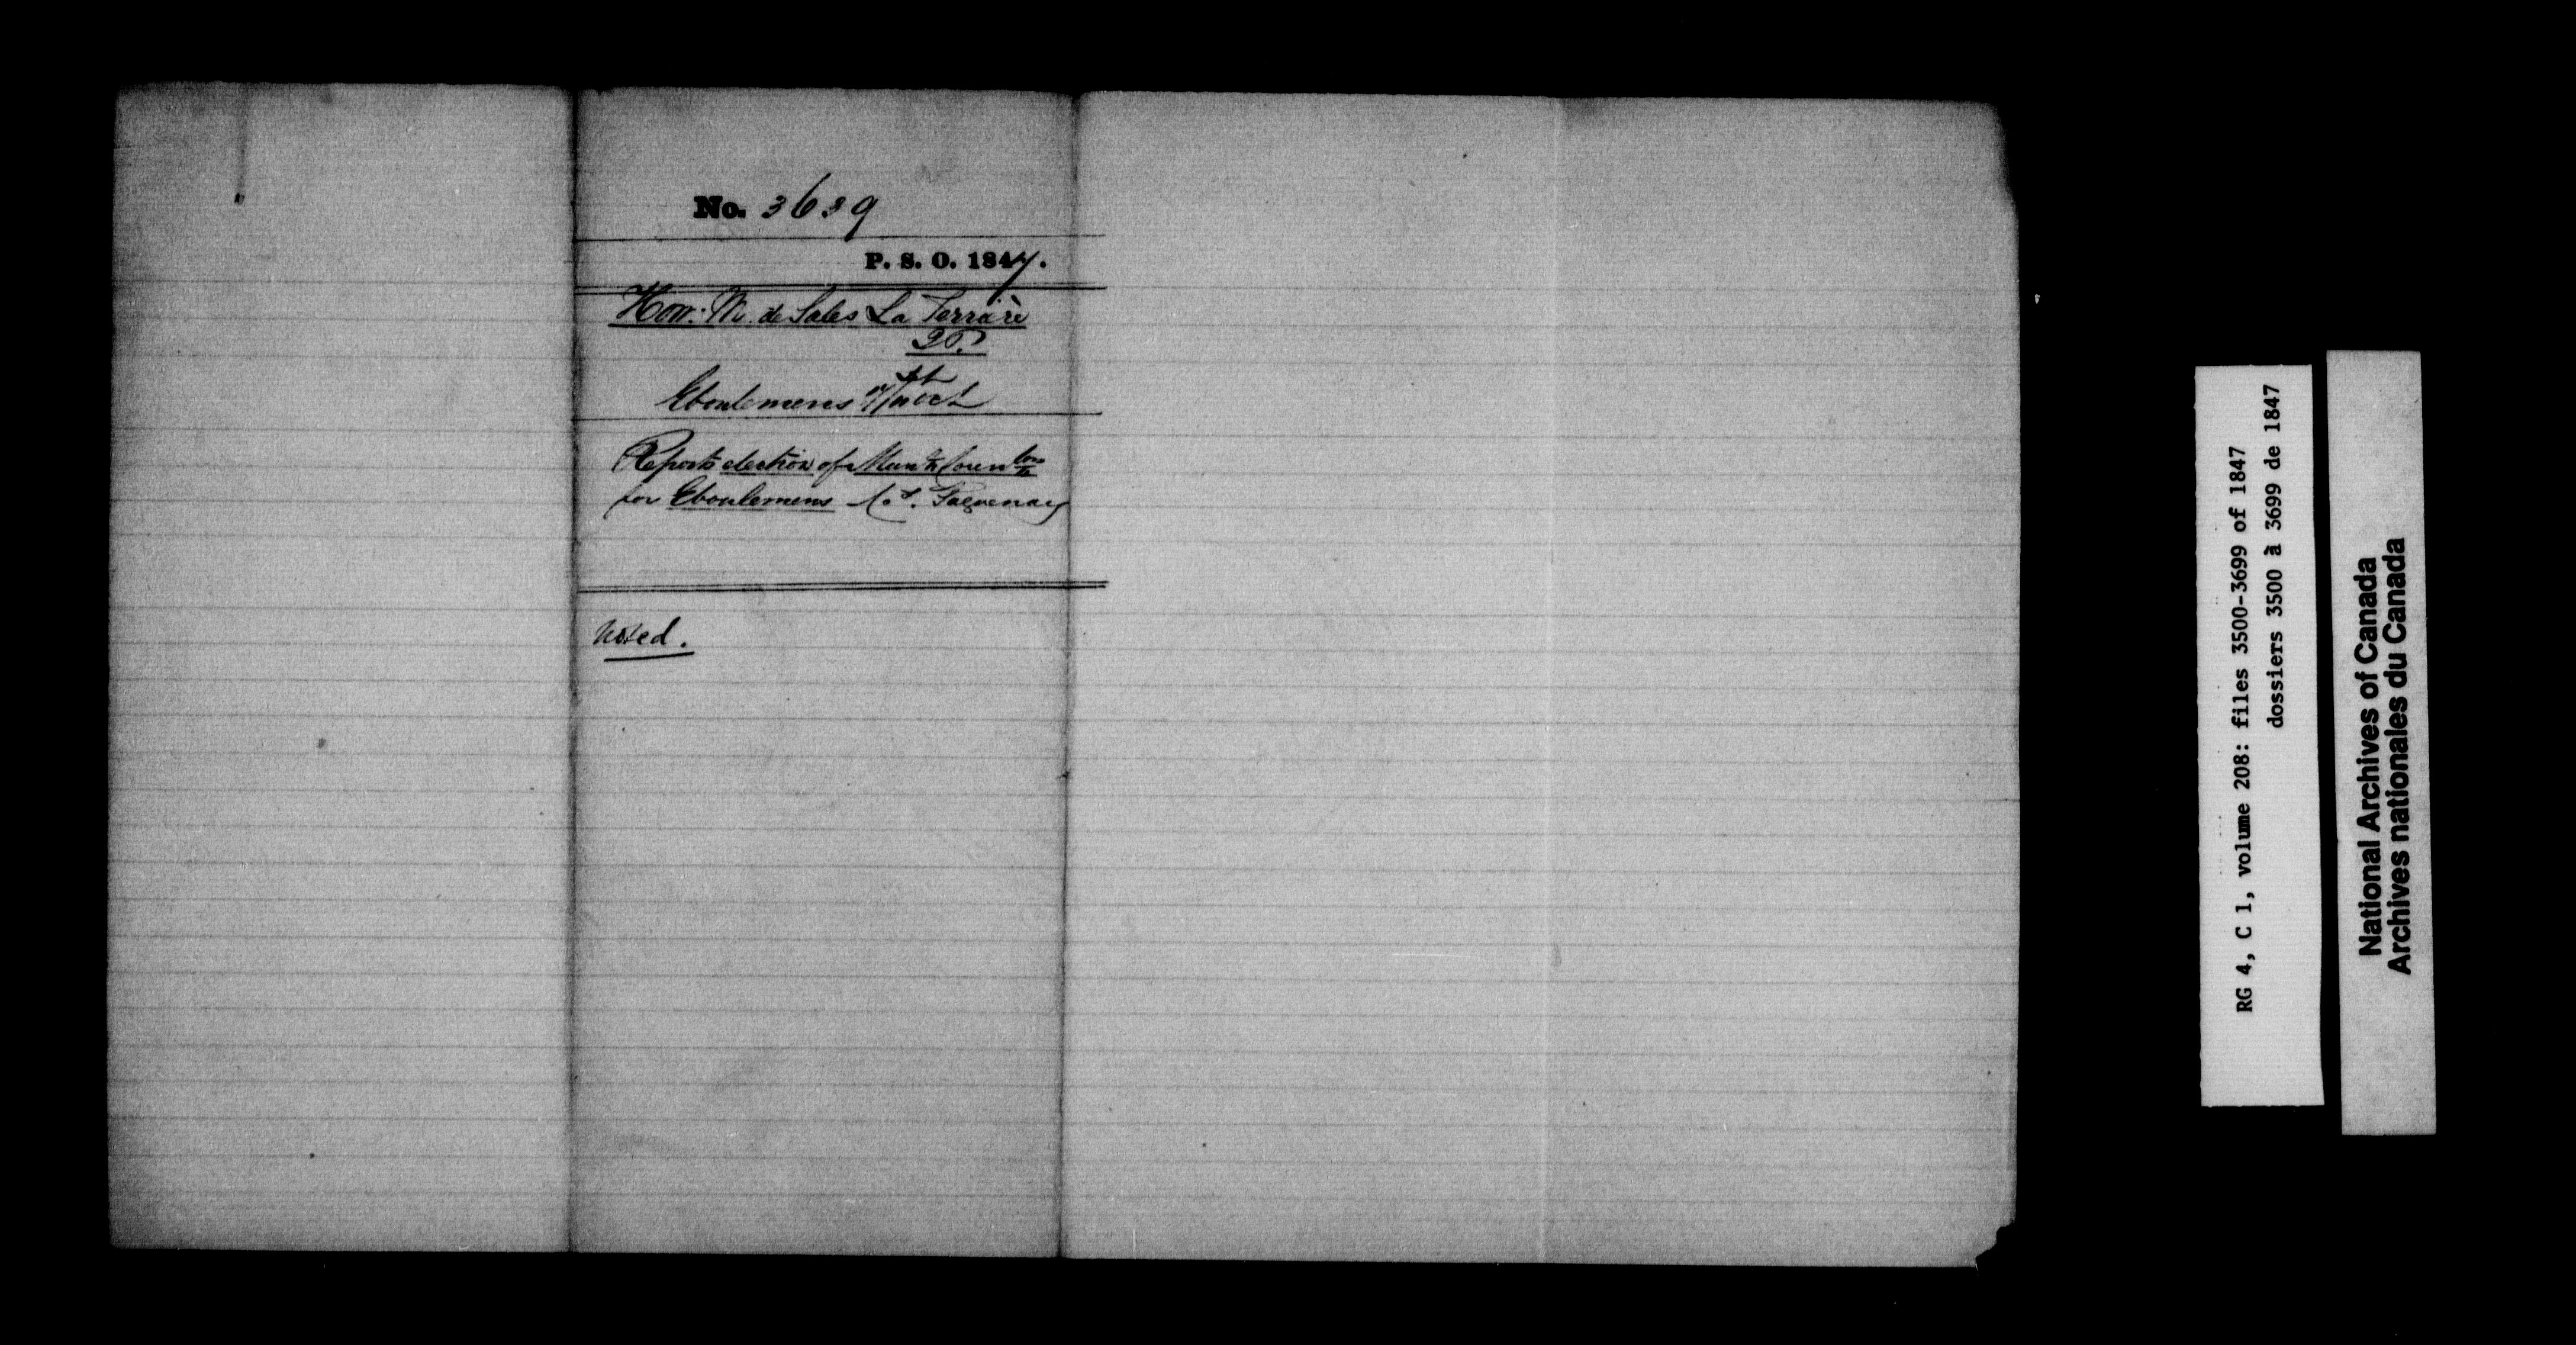 No. 3639
P. S. O. 1847.
Hon: M. de Sales La Terrière
Eboulemens
Reports election of Mun: Coun
for Eboulemens Co. Saguenay
Noted.
RG 4, C 1, volume 208: files 3500-3699 of 1847
dossiers 3500 à 3699 de 1847
National Archives of Canada
Archives nationales du Canada